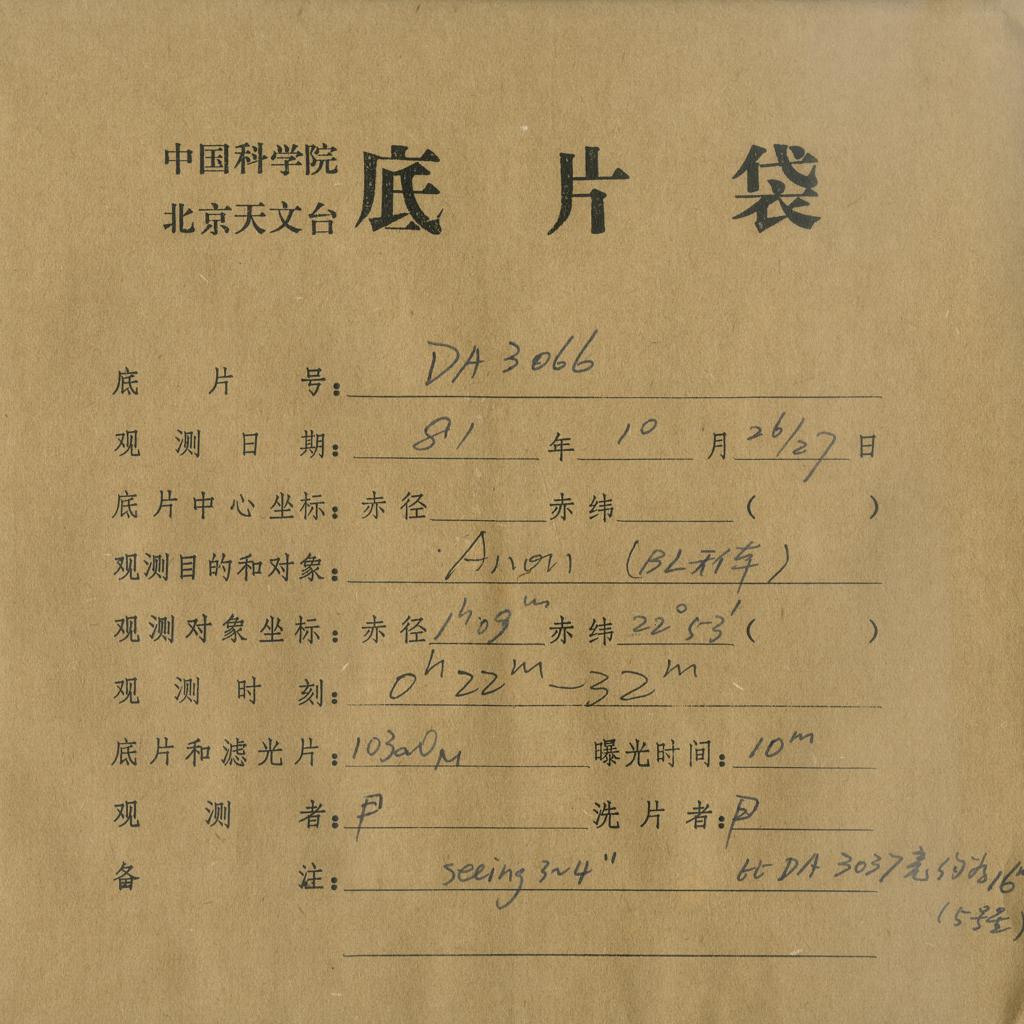 中国科学院
北京天文台
底片袋
底片号: DA 3066
观测日期: 81 年 10 月 26/27 日
底片中心坐标: 赤径 赤纬 ( )
观测目的和对象: Anon (BL
观测对象坐标: 赤径 1h09m 赤纬 22°53′ ( )
观测时刻: 0h22m—32m
底片和滤光片: 103aO 曝光时间: 10m
观测者: 洗片者:
备注: seeing 3~4" 比DA 3037亮 约为16m
(5号星)